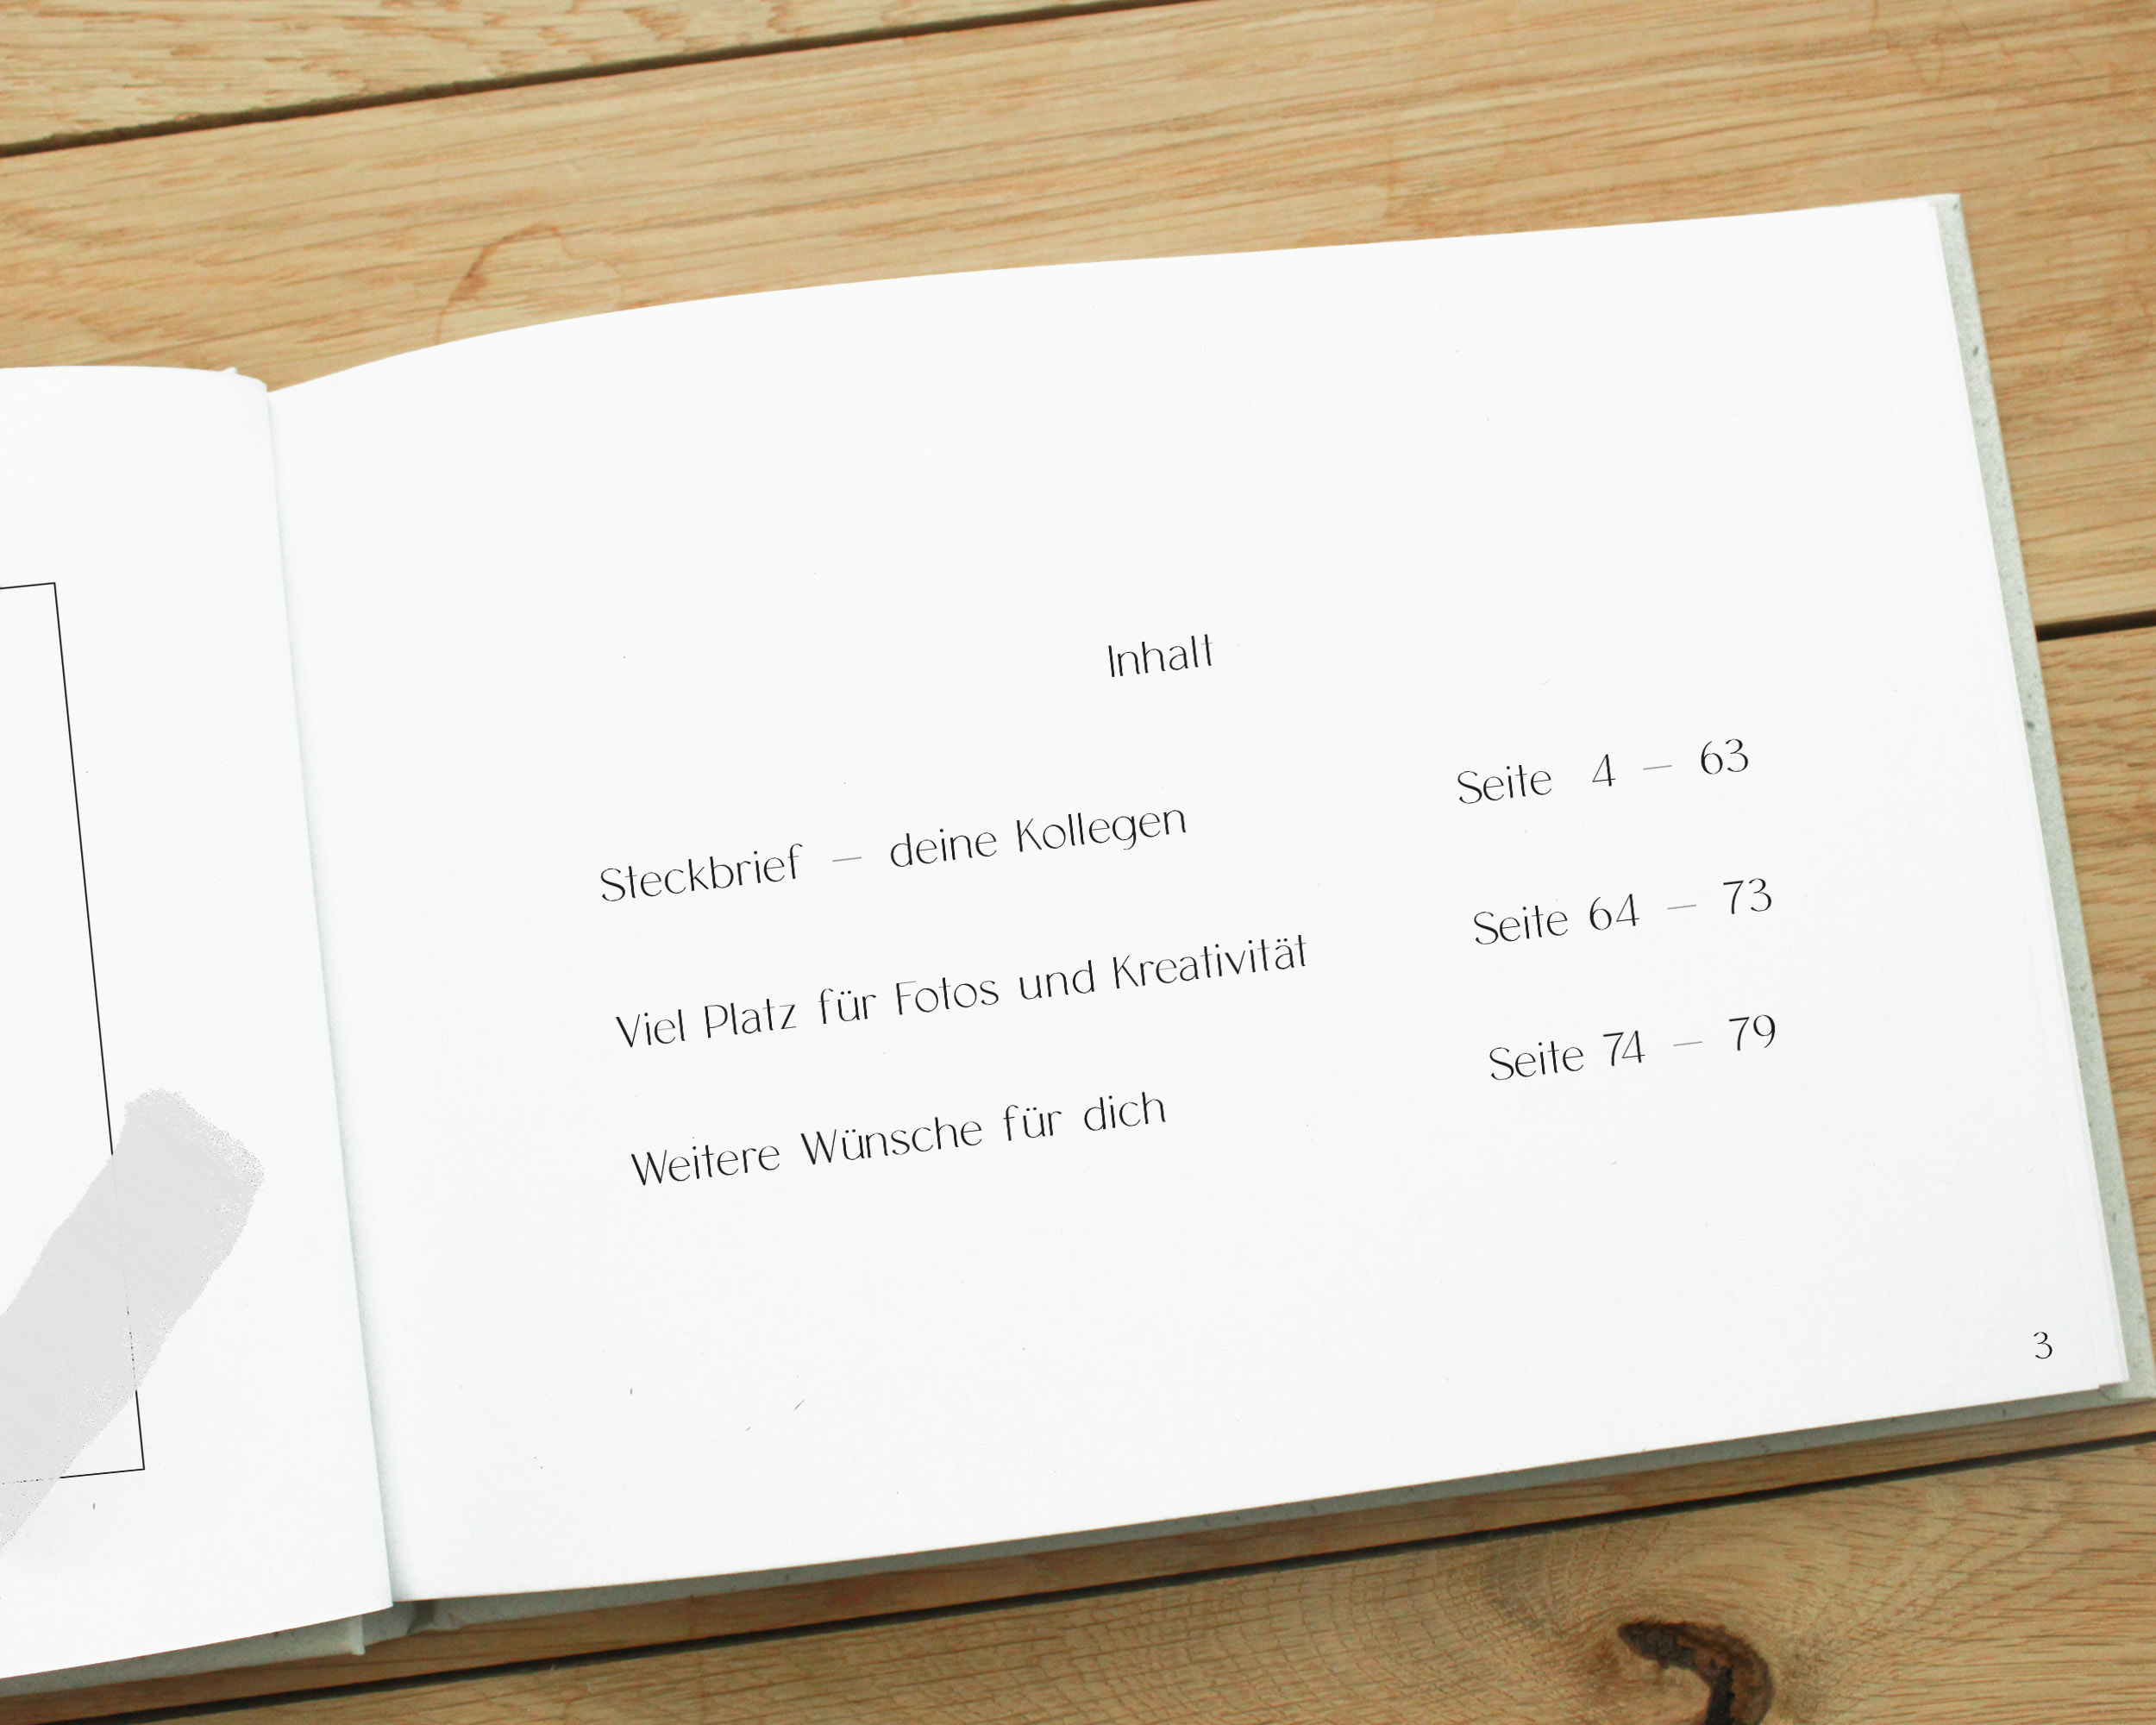 Inhalt
Steckbrief – deine Kollegen Seite 4 – 63
Viel Platz für Fotos und Kreativität Seite 64 – 73
Weitere Wünsche für dich Seite 74 – 79
3